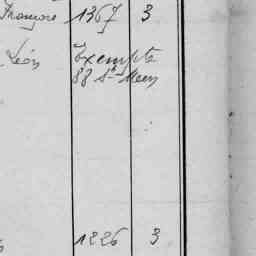 François 1367 3
Léon Exempte
88 St Meen
1226 3